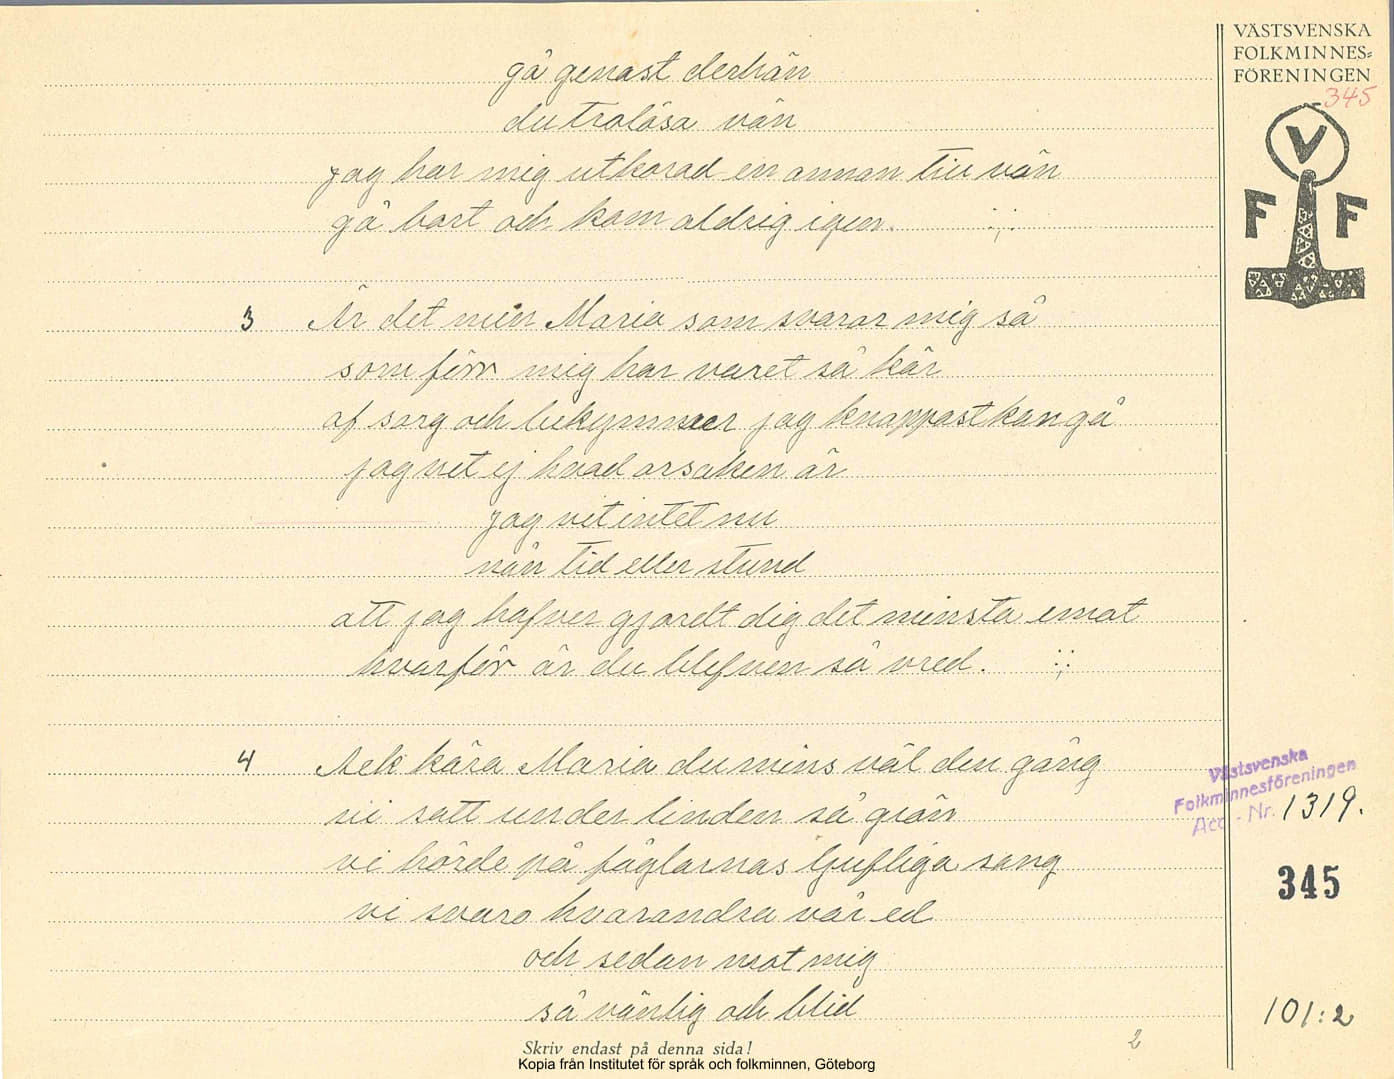 gå genast derhän
du trolösa vän
jag har mig utkorad en annan till vän
gå bort och kom aldrig igen. :;:
3 Är det min Maria som svarar mig så
som förr mig har varet så kär
af sorg och bekymmer jag knappast kan gå
jag vet ej hvad orsaken är
jag vet intet nu
nån tid eller stund
att jag hafver gjordt dig det minsta emot
hvarför är du blefven så vred. :;:
4 Ack kära Maria du mins väl den gång
vi satt under linden så grön
vi hörde på fåglarnas ljufliga sang
vi svuro hvarandra vår ed
och sedan mot mig
så vänlig och blid
Skriv endast på denna sida!
2
Kopia från Institutet för språk och folkminnen, Göteborg
VÄSTSVENSKA
FOLKMINNES=
FÖRENINGEN
345
V
F F
Västsvenska
Folkminnesföreningen
Acc. - Nr. 1319.
345
101:2